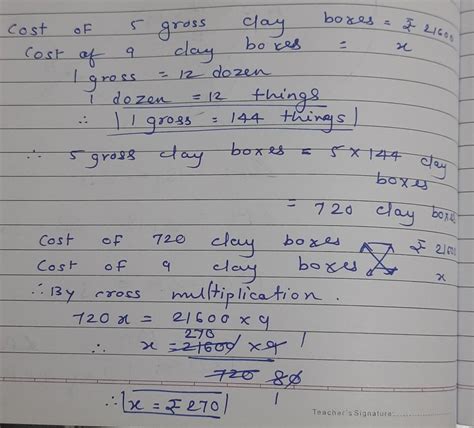 Cost of 5 gross clay boxes = ₹ 21600
Cost of 9 clay boxes = x
1 gross = 12 dozen
1 dozen = 12 things
∴ 1 gross = 144 things
∴ 5 gross clay boxes = 5 × 144 clay
boxes
= 720 clay boxes
Cost of 720 clay boxes ₹ 21600
Cost of 9 clay boxes x
∴ By cross multiplication.
720x = 21600 × 9
270
∴ x = 21600 × 9 1
720 80
1
∴ x = ₹ 270
Teacher's Signature: